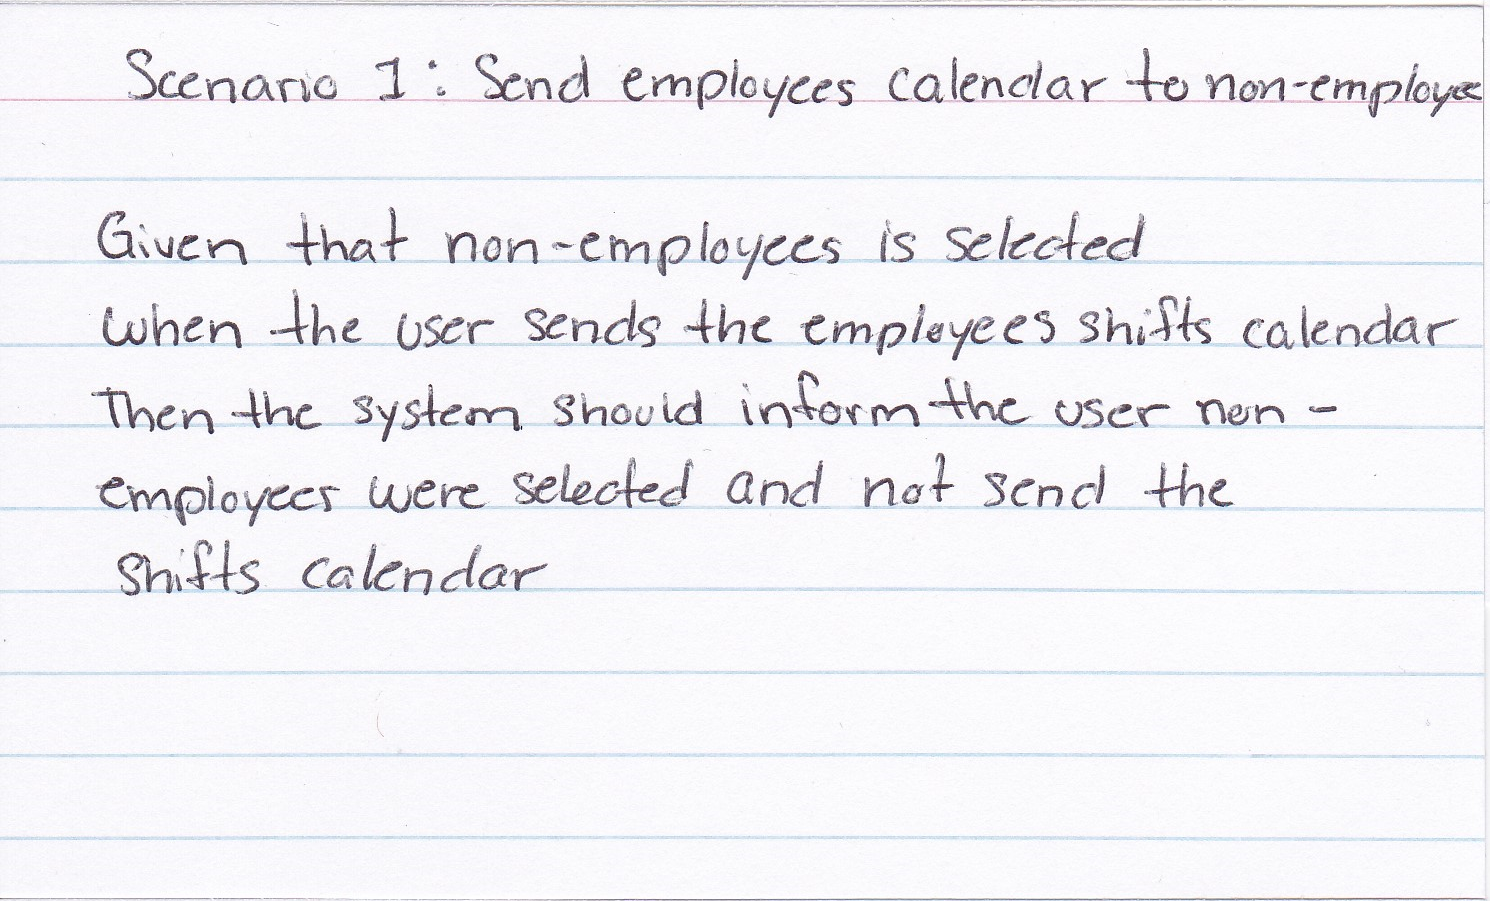 Scenario 1: Send employees calendar to non-employee
Given that non-employees is selected
When the user sends the employees shifts calendar
Then the system should inform the user non-
employees were selected and not send the
shifts calendar